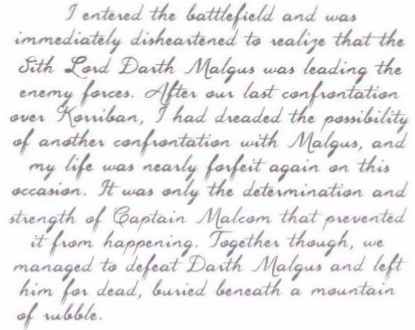 I entered the battlefield and was
immediately disheartened to realize that the
Sith Lord Darth Malgus was leading the
enemy forces. After our last confrontation
over Korriban, I had dreaded the possibility
of another confrontation with Malgus, and
my life was nearly forfeit again on this
occasion. It was only the determination and
strength of Captain Malcom that prevented
it from happening. Together though, we
managed to defeat Darth Malgus and left
him for dead, buried beneath a mountain
of rubble.